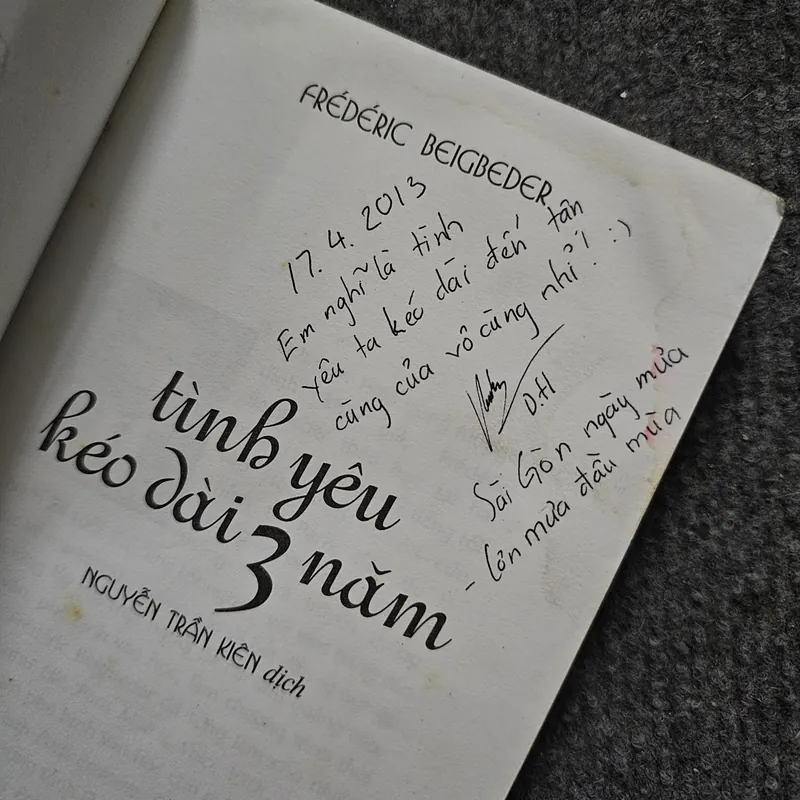 FRÉDÉRIC BEIGBEDER
17.4.2013
Em nghĩ là tình
yêu ta kéo dài đến tân
cùng của vô cùng nhỉ! :)
D.H
Sài Gòn ngày mưa
- Cơn mưa đầu mùa
tình yêu
kéo dài 3 năm
NGUYỄN TRẦN KIÊN dịch